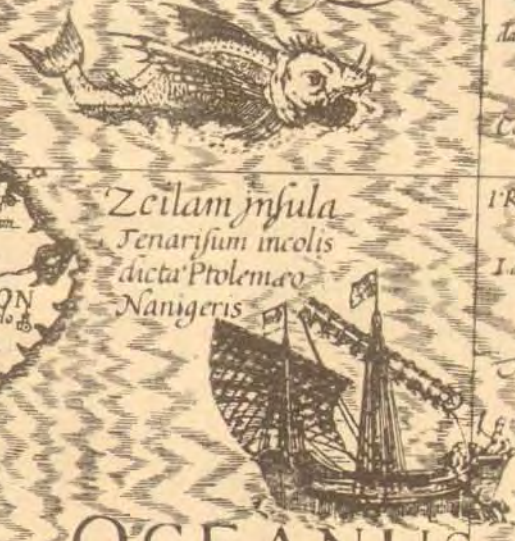 Zeilam insula
Tenarisum incolis
dicta Ptolemæo
Nanigeris
OCEANUS